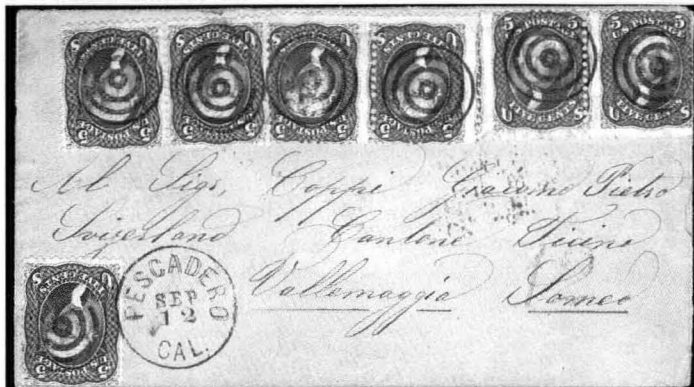 5 U.S. POSTAGE 5
5 U.S. POSTAGE 5
U FIVE CENTS S
U FIVE CENTS S
Al Sigr, Coppi Giacomo Pietro
Svizerland Cantone Ticino
Vallemaggia Someo
PESCADERO
SEP
12
CAL.